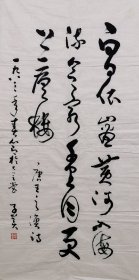 白日依山盡黄河入海
流欲窮千里目更
上一層樓
唐王之渙詩
一九八年春